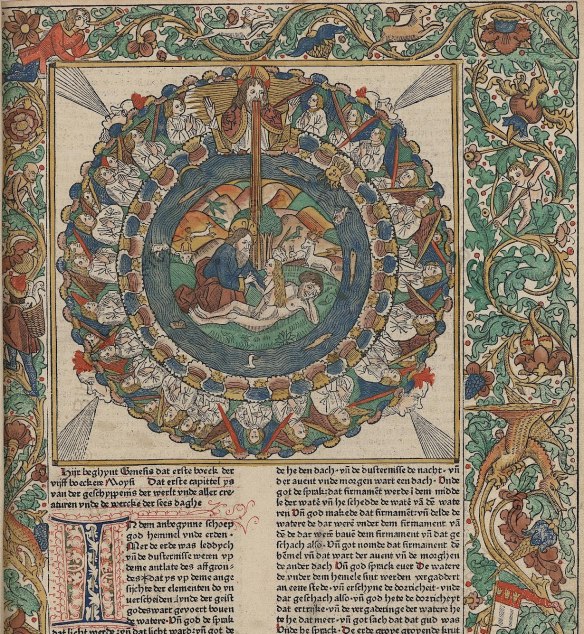 Hijr begyynt Genesis dat erste boeck der
vijff boecker Moysi Dat erste capittel ys
van der scheppyems der werlt vnde aller cre-
aturen vnde de wercke der ses daghe
IN dem anbegynne schoep
god hemmel vnde erden ·
Mer de erde was leddych
vn̄ de dusternisse weren vp
deme antlate des affgron-
des · vnde
sichte der elementen do vn
verscheiden vnde der geist
godes wart gevoert bouen
de watere · Vn̄ god de sprak
dat licht werde · vn̄ dat licht ward · vn̄ got de
de he den dach · vn̄ de dusternisse de nacht · vn̄
der auent vnde morgen wart een dach · Vnde
got de sprak · dat firmamēt werde
vn̄ he schedde de watē vā dē wate
ren Vn̄ god makede dat firmamēt · vn̄ delde de
watere de dar werē vnder dem firmament vā
dē de dar werē bauē dem firmament vn̄ dat ge
schach also · Vn̄ got nomde dat firmament dē
hēmel vn̄ dat wart der auent vn̄ de morghen
de ander dach Vn̄ god sprack euer De watere
de vnder dem hemele sint werden vergaddert
an eene stede · vn̄ erschyne de dorzicheit · vnde
dat geschach also · vn̄ god hete de dorzicheyt
dat ertrijke · vn̄ de vergaderinge der watere he
te he dat meer · vn̄ got sach dat dat gud was
Vnde he sprack · De erde